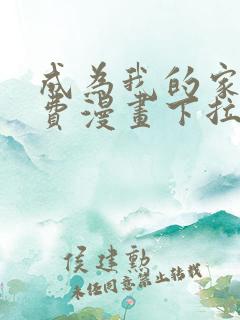 成為我的家
費漫畫下拉
侯建勲
未经同意禁止转载